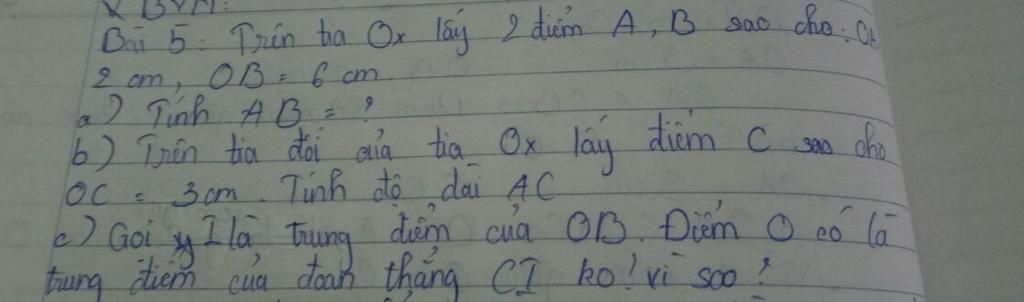 Bài 5: Trên tia Ox lấy 2 điểm A, B sao cho: OA
2 cm, OB = 6 cm
a) Tính AB = ?
b) Trên tia đối của tia Ox lấy điểm C sao cho
OC = 3cm. Tính độ dài AC
c) Gọi I là trung điểm của OB. Điểm O có là
trung điểm của đoan thẳng CI ko! vì sao?